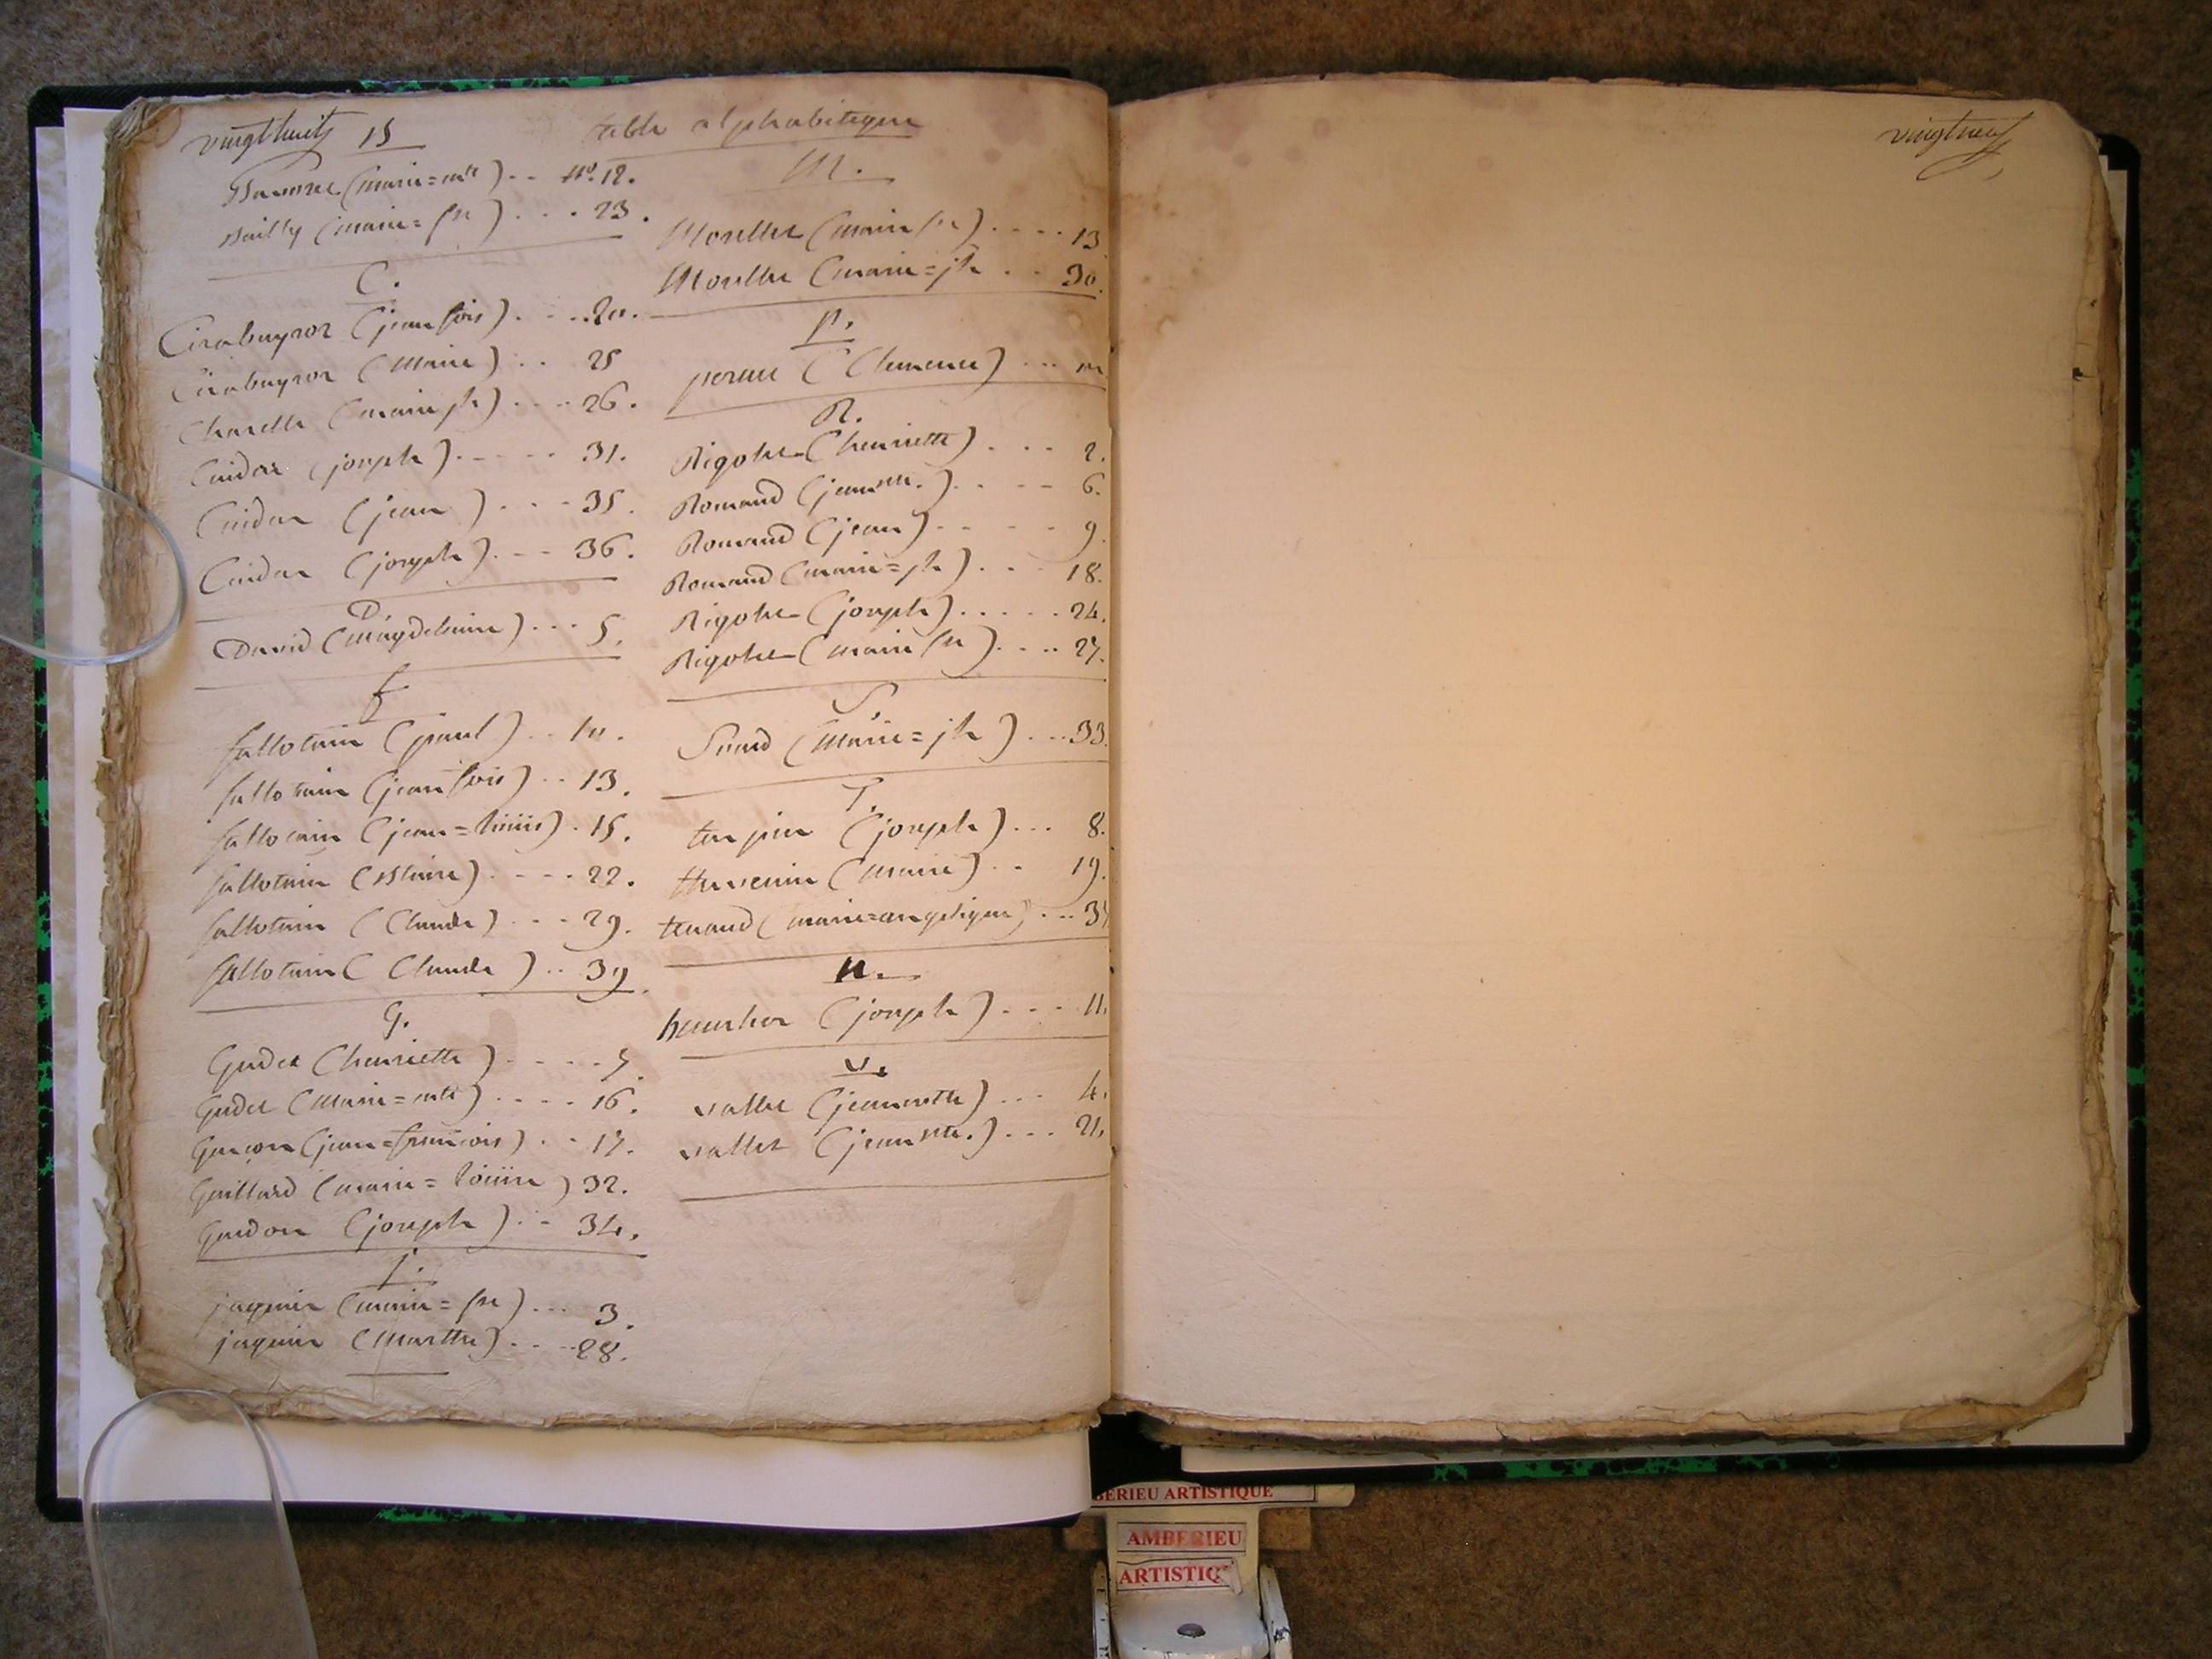 vingthuit B
table alphabetique
(marie=mte) .. No. 12.
Bailly (marie=fse) ... 23.
C.
(jean fois) ... 20.
(marie) .. 25
(marie jh) ... 26.
Cuidar (joseph) ..... 31.
Cuidar (jean) ... 35.
Cuidar (joseph) ... 36.
D.
David (Magdelaine) ... 5.
f
fallotain (paul) .. 10.
fallotain (jean fois) .. 13.
fallotain (jean=louis) . 15.
fallotain (Blaise) .... 22.
fallotain (Claude) ... 29.
fallotain (Claude) .. 39.
G.
Gudet (henriette) ..... 7.
Gudet (marie=mte) .... 16.
Garçon (jean=francois) .. 17.
Gaillard (marie=loüise) 32.
Guidon (joseph) .. 34.
j.
jaquier (marie=fse) ... 3.
jaquier (Marthe) .... 28.
M.
Morellet (marie fse) .... 13
Morellet (marie=jh .. 30.
p.
(Clemence) ...
R.
Rigolet (henriette) .... 2.
Romand (jeannette.) .... 6.
Romand (jean) ..... 9.
Romand (marie=jh) ... 18.
Rigolet (joseph) ..... 24.
Rigolet (marie fse) .... 27.
S
Suard (Marie=jh) ... 33.
T.
turpin (joseph) ... 8.
thevenin (marie) .. 19.
tenand (marie=angelique) ...
(joseph) .... 11.
v.
vallet (jeannette) ... 4.
vallet (jeannette.) ... 21.
vingtneuf
BERIEU ARTISTIQUE
AMBERIEU
ARTISTIQ